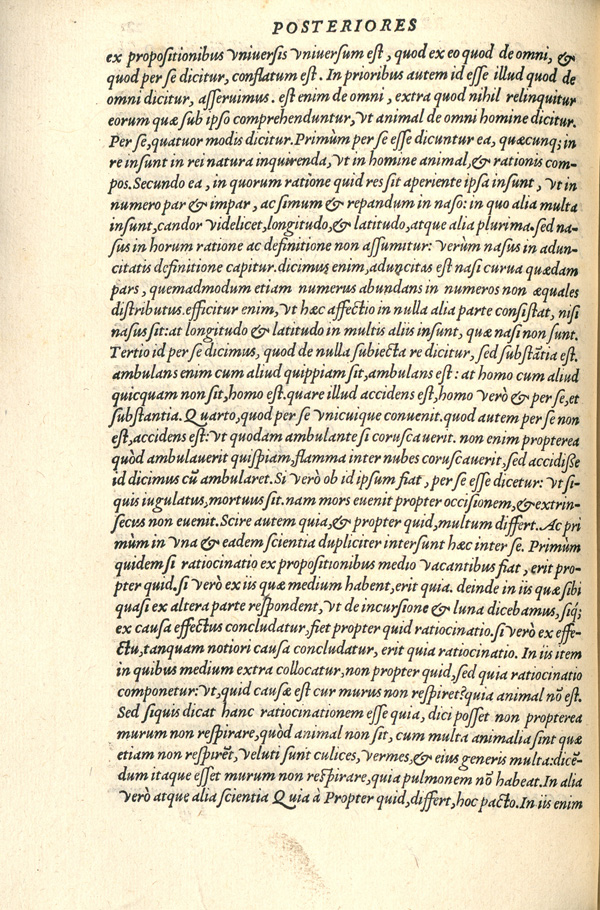 POSTERIORES
ex propositionibus vniversis vniversum est, quod ex eo quod de omni, &
quod per se dicitur, conflatum est. In prioribus autem id esse illud quod de
omni dicitur, asseruimus. est enim de omni, extra quod nihil relinquitur
eorum quæ sub ipso comprehenduntur, vt animal de omni homine dicitur.
Per se, quatuor modis dicitur. Primùm per se esse dicuntur ea, quæcunq; in
re insunt in rei natura inquirenda, vt in homine animal, & rationis com-
pos. Secundo ea, in quorum ratione quid res sit aperiente ipsa insunt, vt in
numero par & impar, ac simum & repandum in naso: in quo alia multa
insunt, candor videlicet, longitudo, & latitudo, atque alia plurima. sed na-
sus in horum ratione ac definitione non assumitur: verùm nasus in adun-
citatis definitione capitur. dicimus enim, aduncitas est nasi curua quædam
pars, quemadmodum etiam numerus abundans in numeros non æquales
distributus. efficitur enim, vt hæc affectio in nulla alia parte consistat, nisi
nasus sit: at longitudo & latitudo in multis aliis insunt, quæ nasi non sunt.
Tertio id per se dicimus, quod de nulla subiecta re dicitur, sed substātia est.
ambulans enim cum aliud quippiam sit, ambulans est: at homo cum aliud
quicquam non sit, homo est. quare illud accidens est, homo verò & per se, et
substantia. Quarto, quod per se vnicuique conuenit. quod autem per se non
est, accidens est: vt quodam ambulante si coruscauerit. non enim propterea
quòd ambulauerit quispiam, flamma inter nubes coruscauerit, sed accidisse
id dicimus cū ambularet. Si verò ob id ipsum fiat, per se esse dicetur: vt si-
quis iugulatus, mortuus sit. nam mors euenit propter occisionem, & extrin-
secus non euenit. Scire autem quia, & propter quid, multum differt. Ac pri
mùm in vna & eadem scientia dupliciter intersunt hæc inter se. Primùm
quidem si ratiocinatio ex propositionibus medio vacantibus fiat, erit pro-
pter quid. si verò ex iis quæ medium habent, erit quia. deinde in iis quæ sibi
quasi ex altera parte respondent, vt de incursione & luna dicebamus, siq;
ex causa effectus concludatur, fiet propter quid ratiocinatio. si verò ex effe-
ctu, tanquam notiori causa concludatur, erit quia ratiocinatio. In iis item
in quibus medium extra collocatur, non propter quid, sed quia ratiocinatio
componetur: vt, quid causæ est cur murus non respiret? quia animal nō est.
Sed siquis dicat hanc ratiocinationem esse quia, dici posset non propterea
murum non respirare, quòd animal non sit, cum multa animalia sint quæ
etiam non respirēt, veluti sunt culices, vermes, & eius generis multa: dicē-
dum itaque esset murum non respirare, quia pulmonem nō habeat. In alia
verò atque alia scientia Quia à Propter quid, differt, hoc pacto. In iis enim